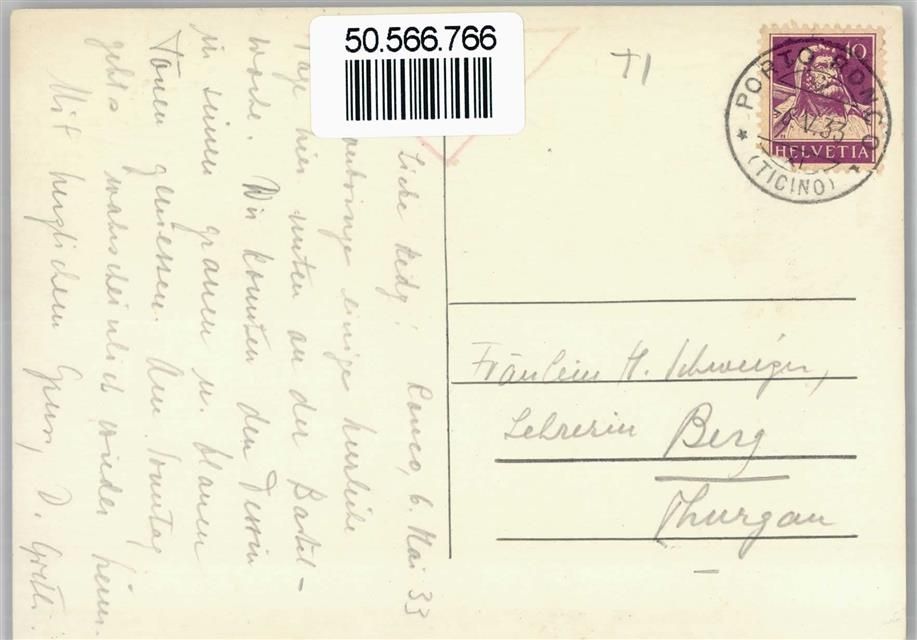 50.566.766
TI
PORTO RONCO
(TICINO)
V.33
10
HELVETIA
Liebe Hedy! Ronco, 6. Mai 33
einige herrliche
Tage hier unten an der Bastel-
woche. Wir konnten den Tessin
in seinen grauen u. blauen
Tönen geniessen. Am Sonntag
gehts wahrscheinlich wieder heim.
Mit herzlichem Gruss, D. Gretti.
Fräulein H. Schweizer,
Lehrerin Berg
Thurgau